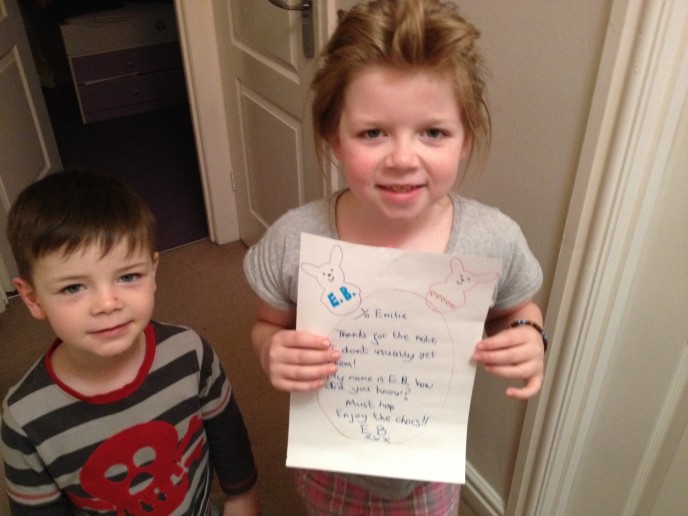 E.B.
To Emilie
Thanks for the note
dont usually get
My name is E.B. how
did you know?
Must hop
Enjoy the chocs!!
E.B.
xxx